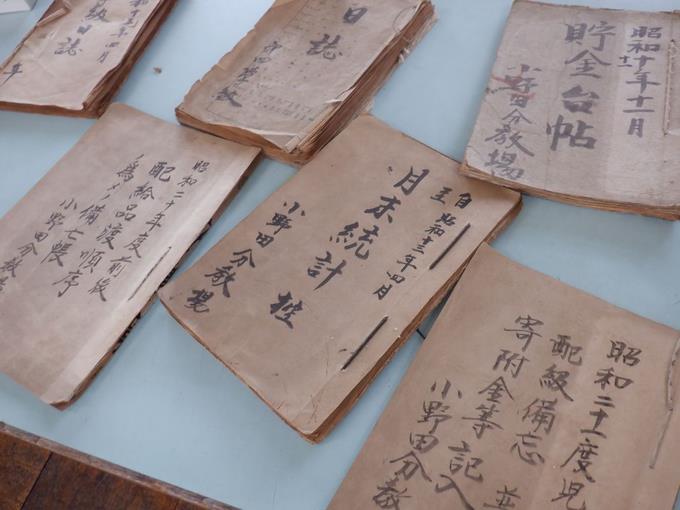 日誌
昭和十年十一月
貯金台帖
小野田分教場
昭和二十年度
配給品渡前後
為メノ備七帳
小野田分教
自
至 昭和十三年四月
月末統計 控
小野田分教場
昭和二十一度児
配級備忘
寄附金等記入
小野田分教